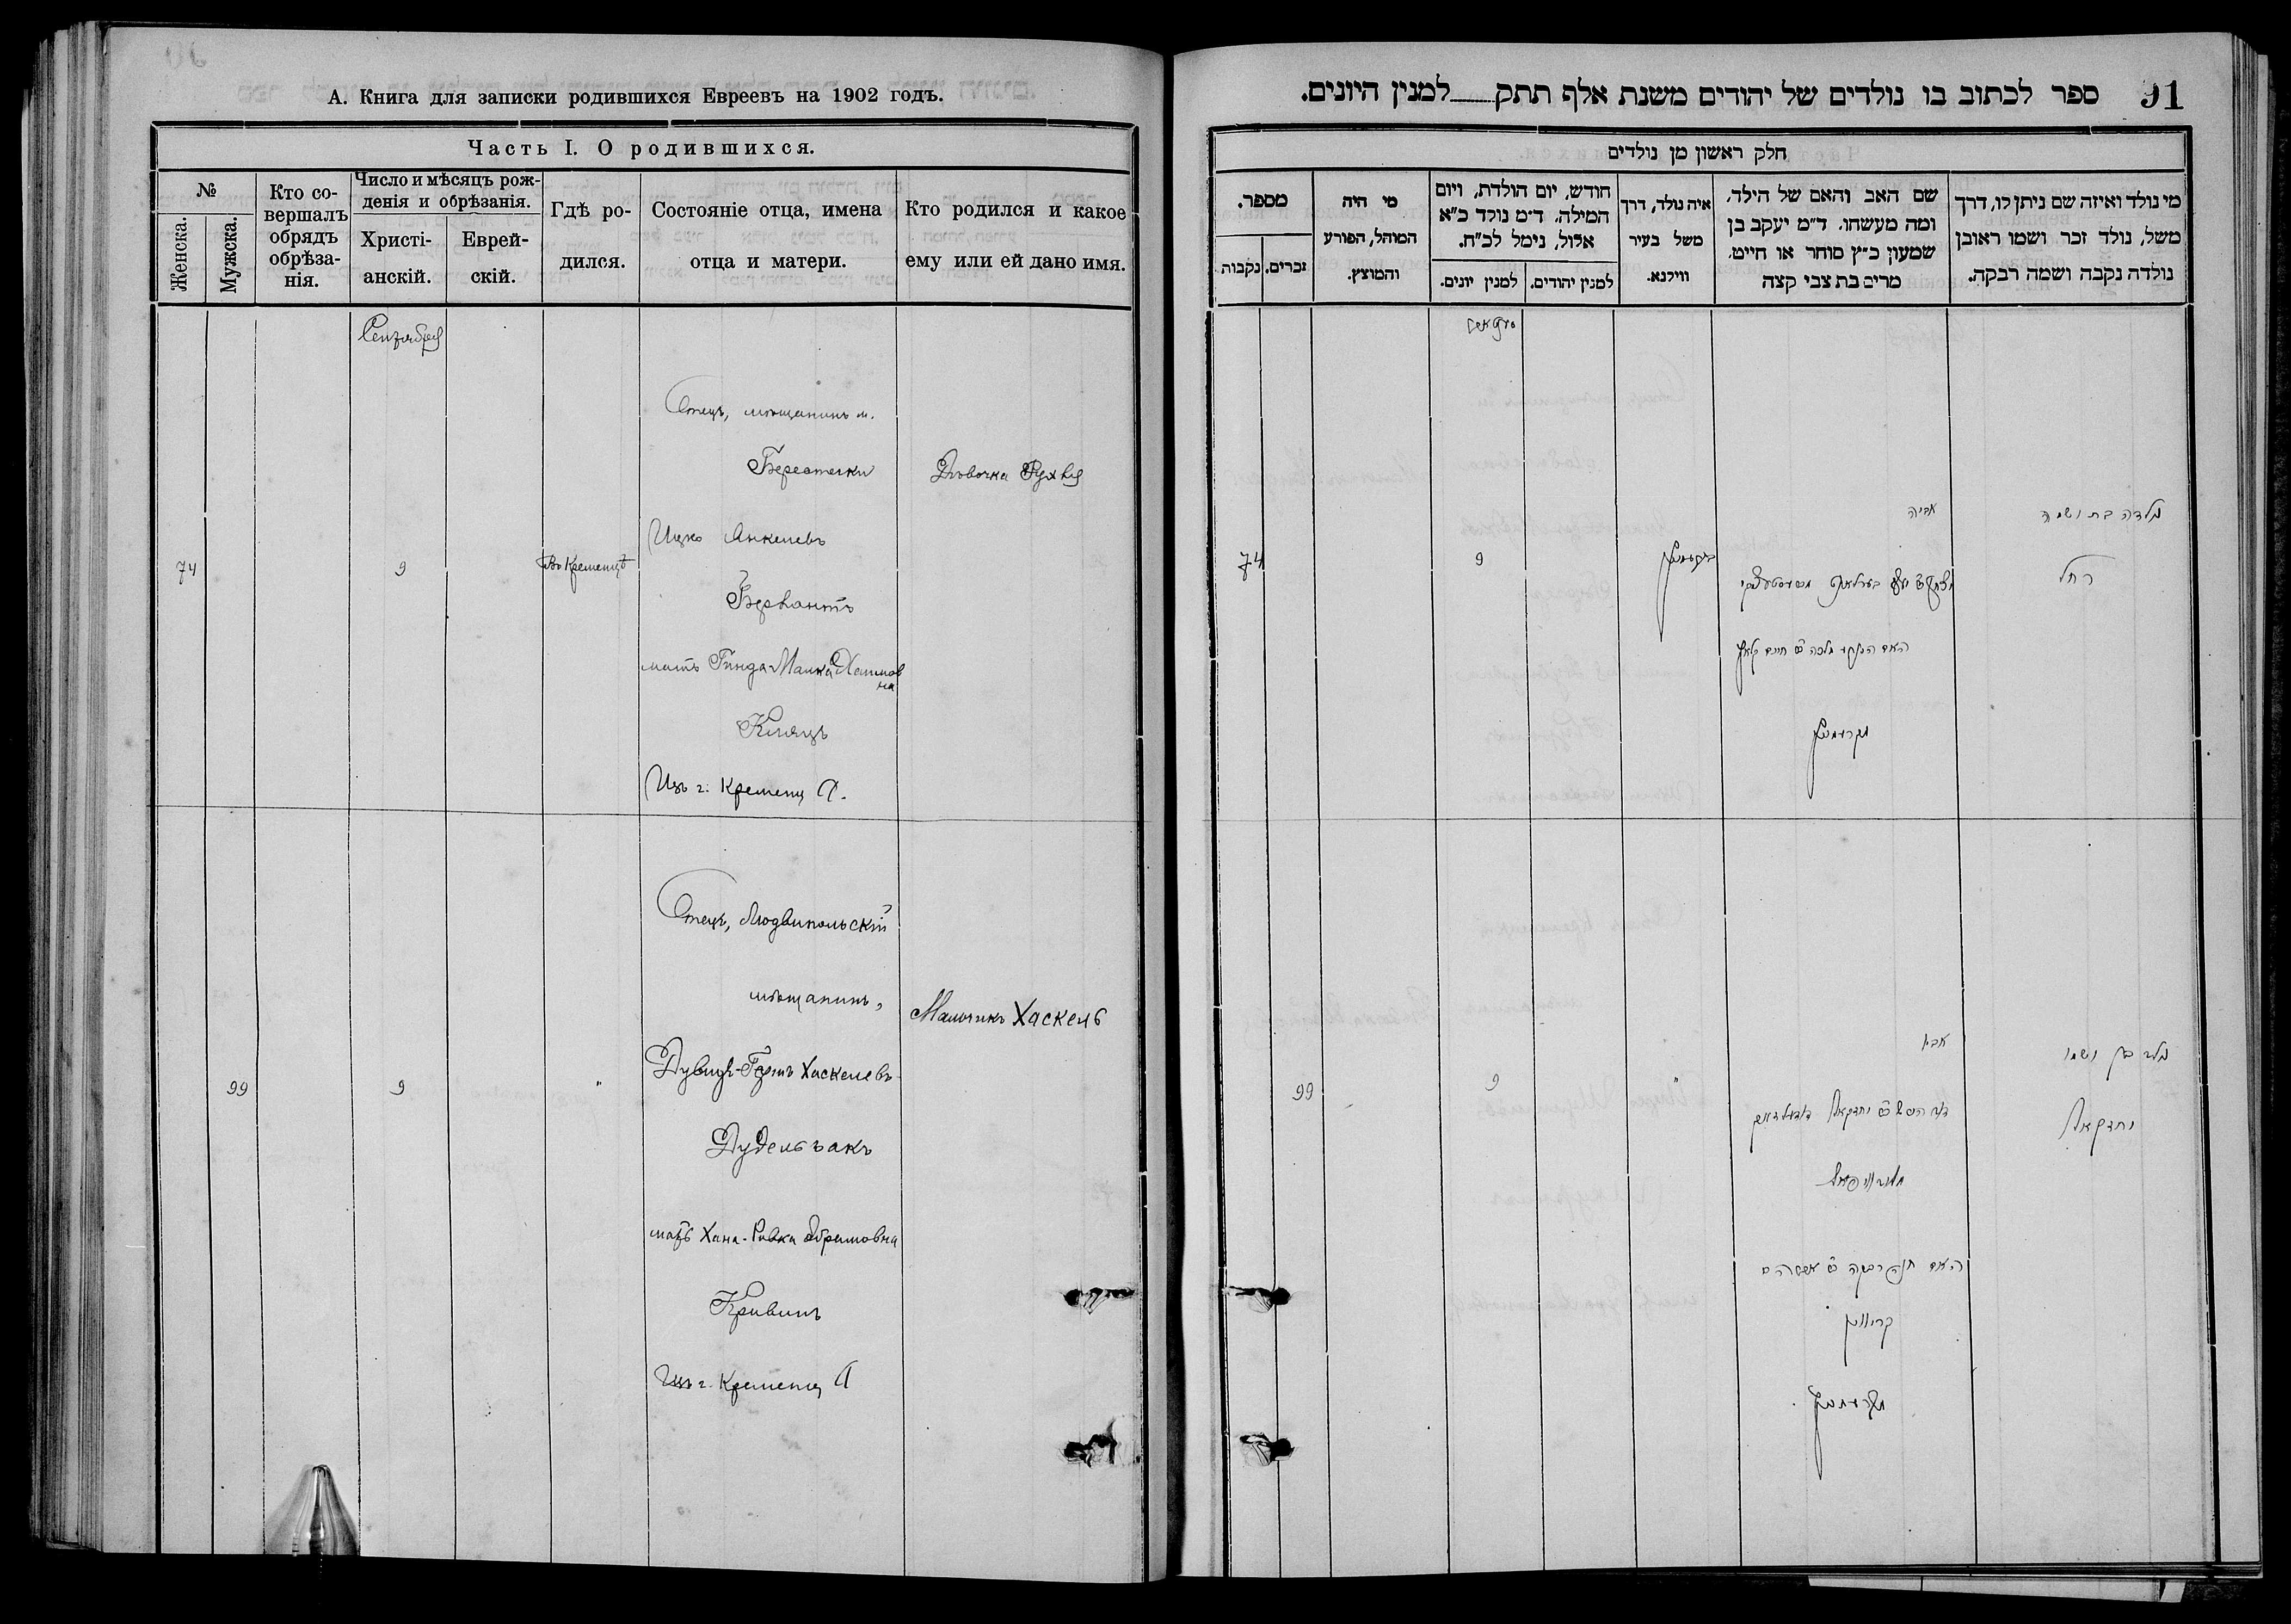 А. Книга для записки родившихся Евреевъ на 1902 годъ.
Часть I. О родившихся.
№
Женска.
Мужска.
Кто со-
вершалъ
обрядъ
обрѣза-
нія.
Число и мѣсяцъ рож-
денія и обрѣзанія.
Христі-
анскій.
Еврей-
скій.
Гдѣ ро-
дился.
Состояніе отца, имена
отца и матери.
Кто родился и какое
ему или ей дано имя.
Сентября
74
9
Въ Кременцѣ
Отецъ, мѣщанинъ м.
Берестечки
Ицко Янкелевъ
мать Гинда Малка Хаимов
на
Изъ г. Кременца.
Дѣвочка Рухля
99
9
"
Отецъ, Людвипольскій
мѣщанинъ,
Дувидъ-Гершъ Хаскелевъ
Дудельзакъ
мать Хана-Ривка Абрамовна
Кривинъ
Изъ г. Кременца
Мальчикъ Хаскель
91
ספר לכתוב בו נולדים של יהודים משנת אלף תתק למנין היונים.
חלק ראשון מן נולדים
מספר.
זכרים.
נקבות
מי היה
המוהל, הפורע
והמוצץ.
חודש, יום הולדת, ויום
המילה. ד״מ נולד כ״א
אלול, נימל לכ״ח.
למנין יונים.
למנין יהודים.
איה נולד, דרך
משל בעיר
ווילנא.
שם האב והאם של הילד,
ומה מעשהו. ד״מ יעקב בן
שמעון כ״ץ סוחר או חייט.
מרים בת צבי קצה
מי נולד ואיזה שם ניתן לו, דרך
משל, נולד זכר ושמו ראובן
נולדה נקבה ושמה רבקה.
74
9
אביה
מקרעמניץ
נולדה בת ושמה
רחל
99
9
"
אביו
האם חנה רבקה
קריווין
מקרעמניץ
נולד בן ושמו
יחזקאל